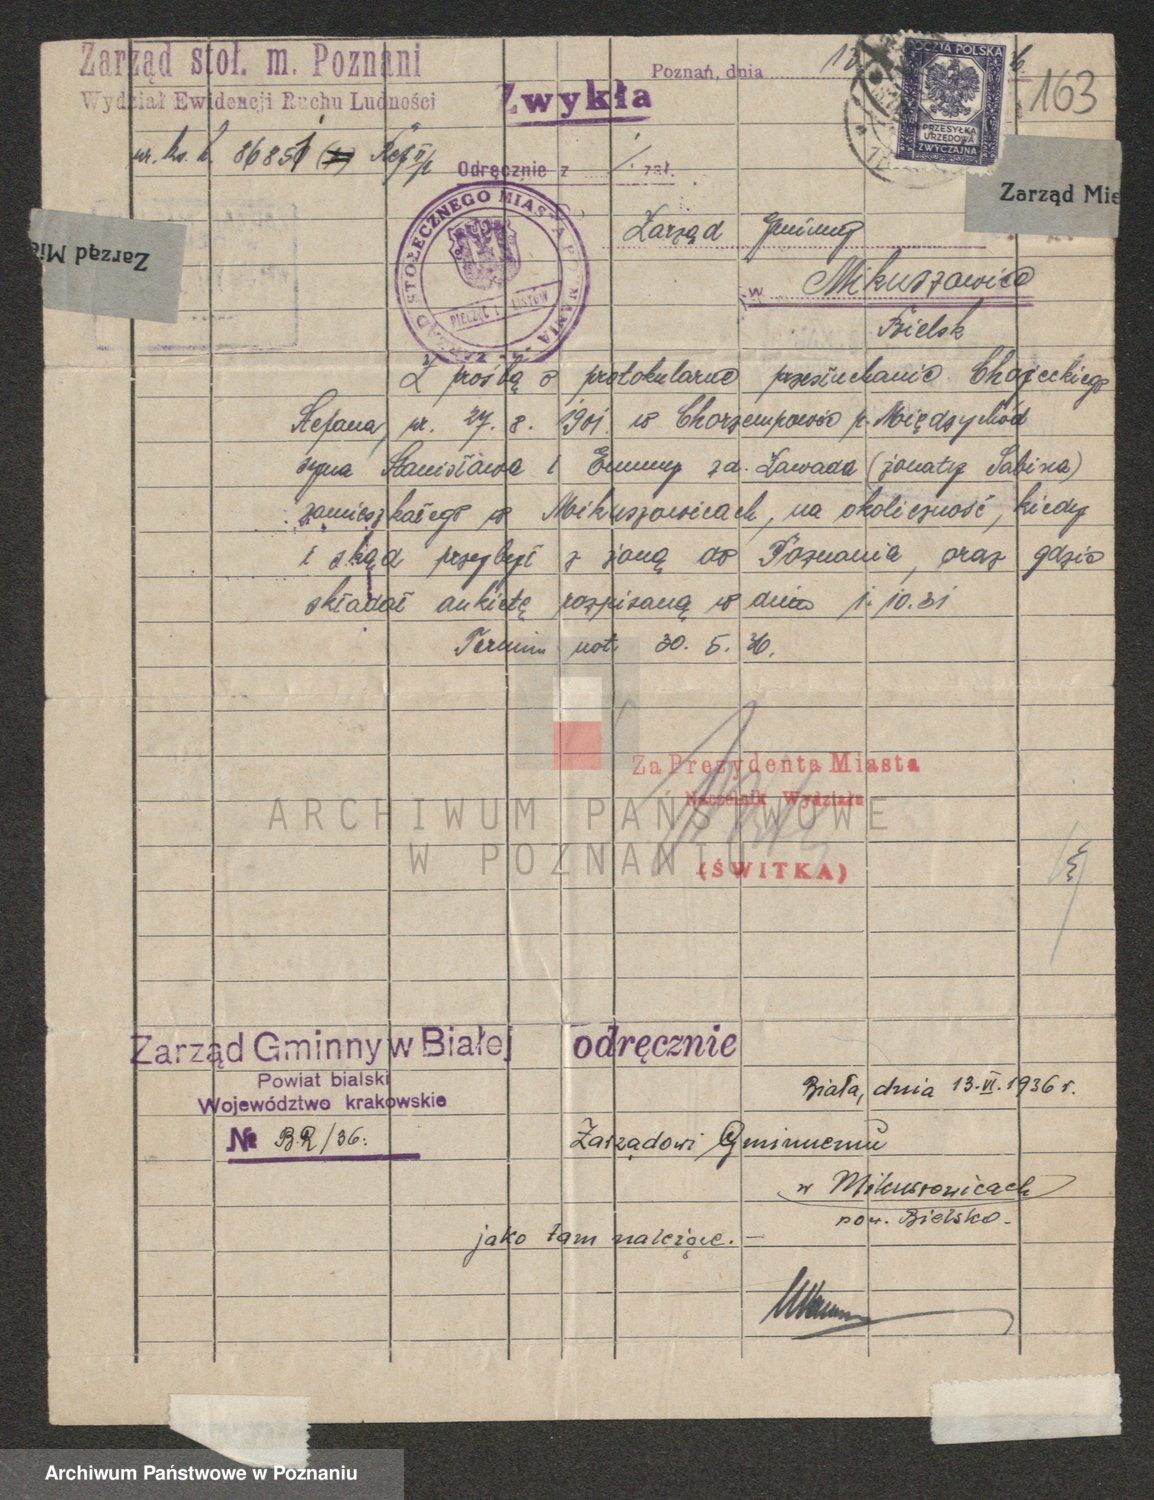 Zarząd stoł. m. Poznani
Wydział Ewidencji Ruchu Ludności
Zwykła
Poznań, dnia 13
6
163
POCZTA POLSKA
PRZESYŁKA
URZĘDOWA
ZWYCZAJNA
86851
Odręcznie z / zał.
Zarząd Mie
Zarząd Mia
ZARZĄD STOŁECZNEGO MIASTA POZNANIA
PIECZĘĆ LISTÓW
Zarząd Gminny
w Mikuszowice
Bielsk
Z prośbą o protokularne przesłuchanie Chojeckiego
Stefana, ur. 27. 8. 1901 w Chorzempowo p. Międzychód
syna Stanisława i Emmy zd. Zawada (żonaty Sabina)
zamieszkałego w Mikuszowicach, na okoliczność, kiedy
i skąd przybył z żoną do Poznania, oraz gdzie
składał ankietę rozpisaną w dniu 1. 10. 31
Termin not. 30. 5. 36.
Za Prezydenta Miasta
Naczelnik Wydziału
(ŚWITKA)
ARCHIWUM PAŃSTWOWE
W POZNANIU
Zarząd Gminny w Białej
odręcznie
Powiat bialski
Województwo krakowskie
№ B.R/36.
Biała, dnia 13.VI.1936 r.
Zarządowi Gminnemu
w Mikuszowicach
pow. Bielsko.
jako tam należące. —
Archiwum Państwowe w Poznaniu